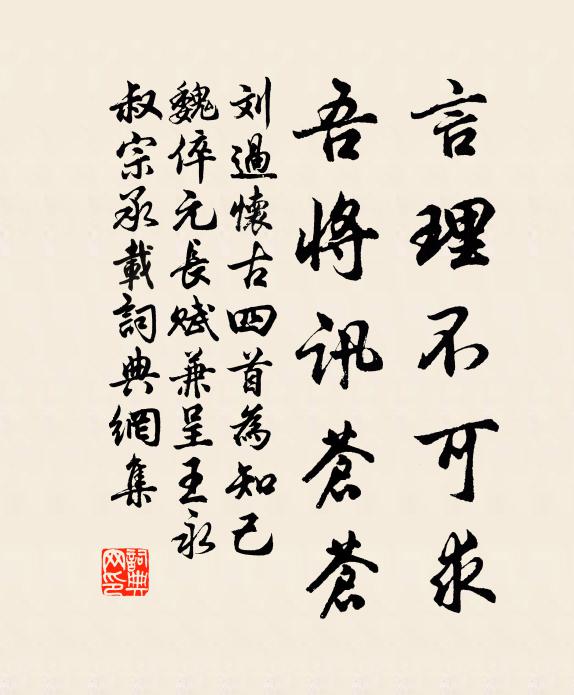 言理不可求
吾将讯蒼蒼
刘過懷古四首為知己
魏倅元長赋兼呈王永
叔宗承載詞典網集
詞典网印